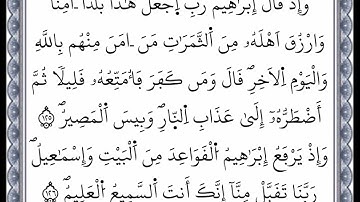 وَإِذْ قَالَ إِبْرَٰهِيمُ رَبِّ اِ۪جْعَلْ هَٰذَا بَلَداً ـامِناً
وَارْزُقَ اَهْلَهُۥ مِنَ اَ۬لثَّمَرَٰتِ مَنَ ـامَنَ مِنْهُم بِاللَّهِ
وَالْيَوْمِ اِ۬لَاخِرِۖ قَالَ وَمَن كَفَرَ فَأُمَتِّعُهُۥ قَلِيلاً ثُمَّ
أَضْطَرُّهُۥٓ إِلَىٰ عَذَابِ اِ۬لنّ۪ارِۖ وَبِيسَ اَ۬لْمَصِيرُۖ ١٢٥
وَإِذْ يَرْفَعُ إِبْرَٰهِيمُ اُ۬لْقَوَاعِدَ مِنَ اَ۬لْبَيْتِ وَإِسْمَٰعِيلُۖ
رَبَّنَا تَقَبَّلْ مِنَّآ إِنَّكَ أَنتَ اَ۬لسَّمِيعُ اُ۬لْعَلِيمُۖ ١٢٦